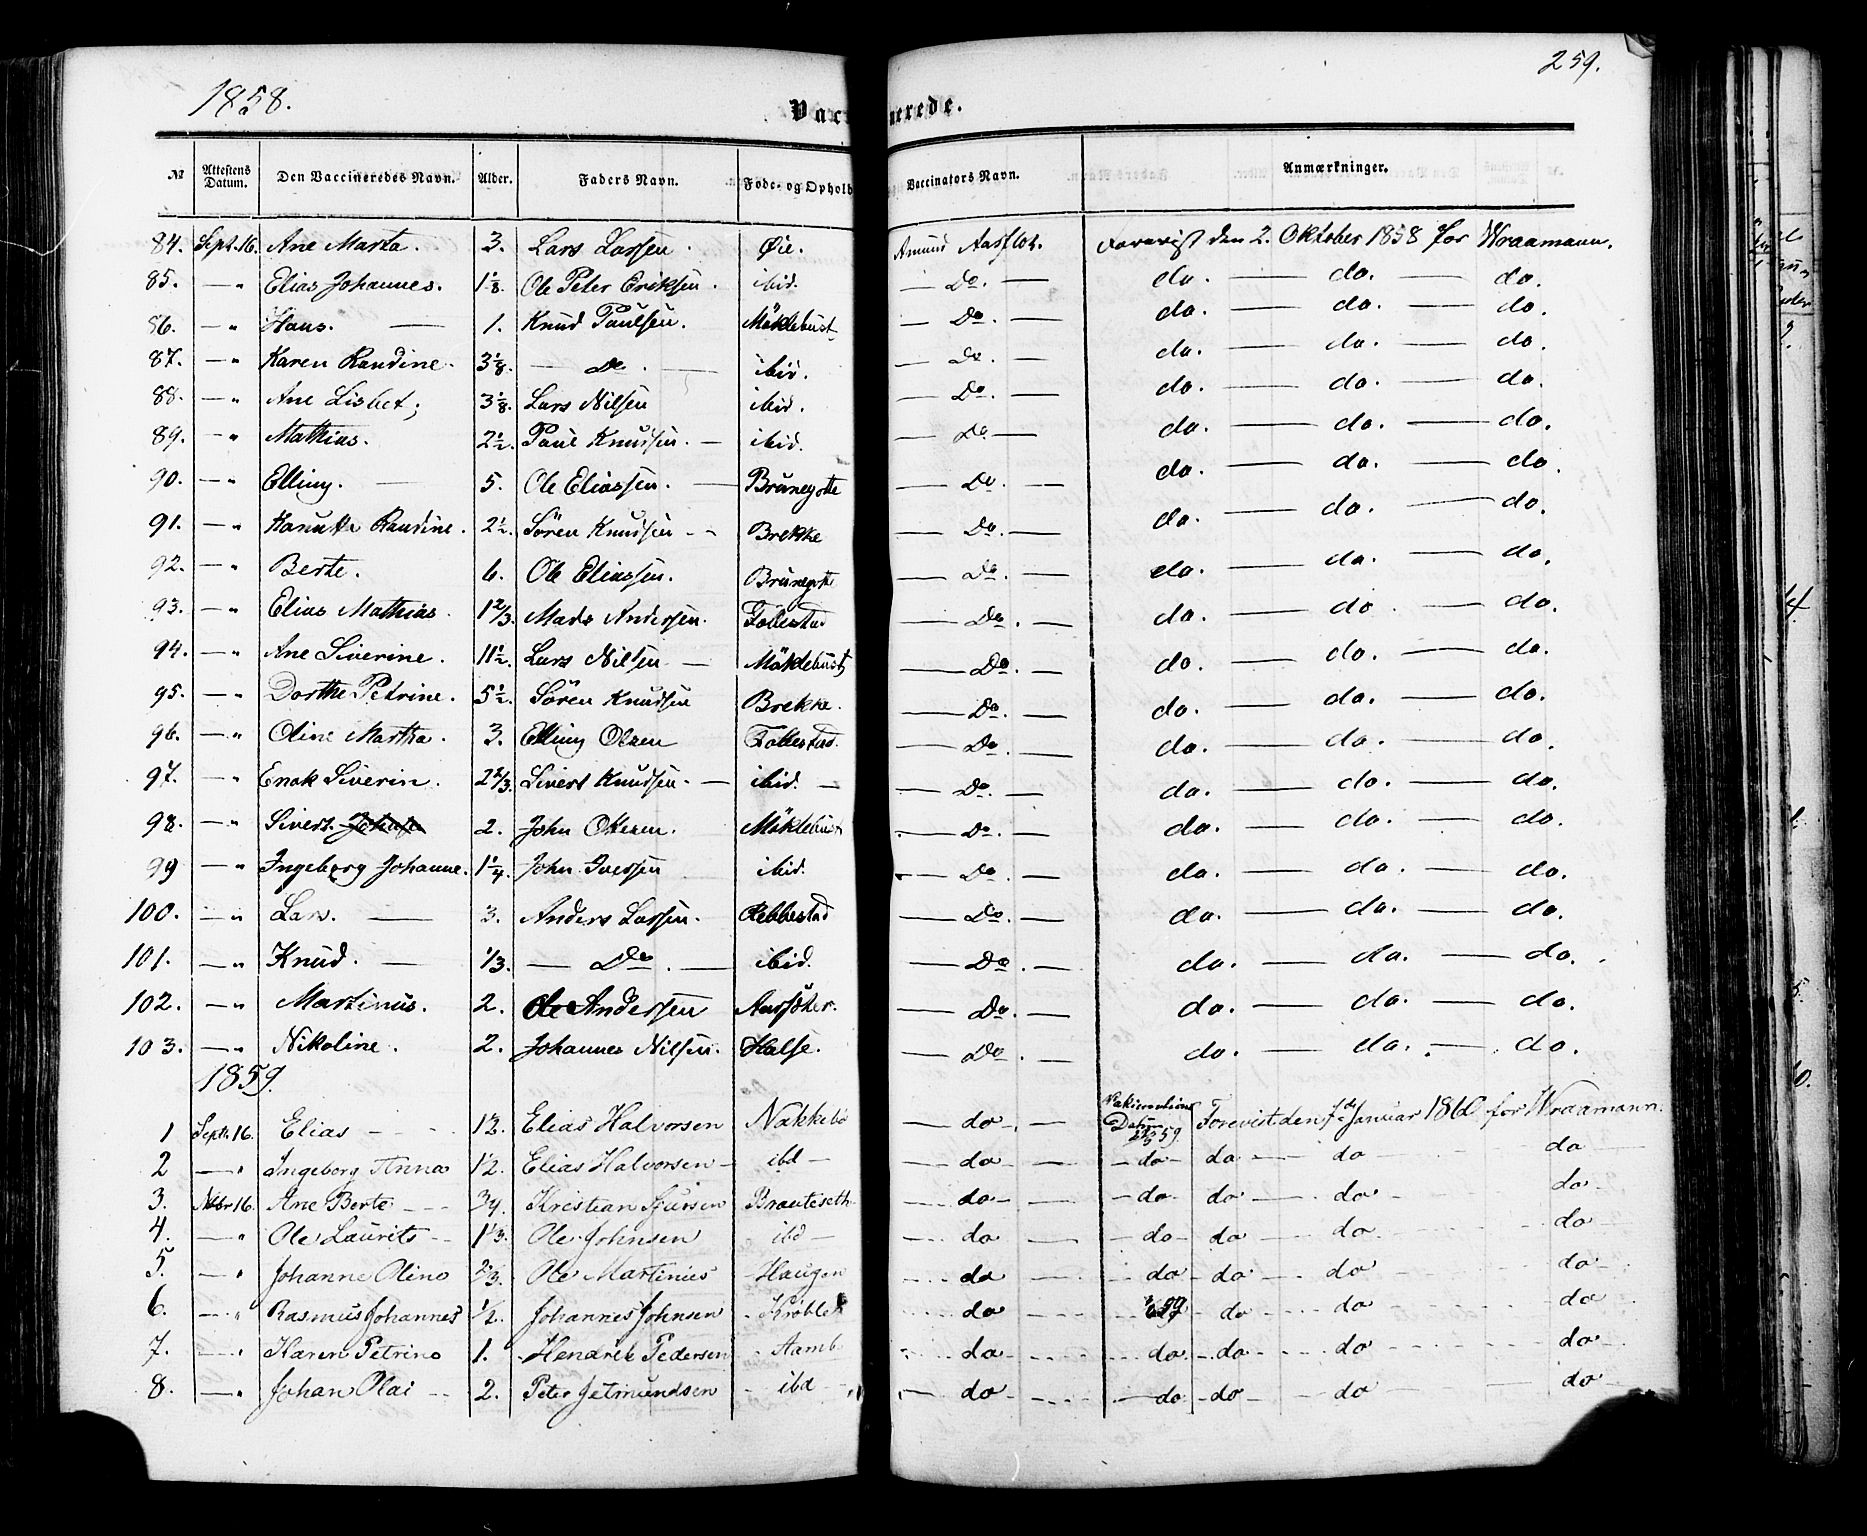 1858.
259.
Vac nerede.
№ Attestens Datum. Den Vaccineredes Navn. Alder. Faders Navn. Føde- og Ophold Vaccinators Navn. Anmærkninger.
84. Sept. 16. Ane Marta. 3. Lars Larssen. Øie. Amund Aarflot. Forevist den 2. Oktober 1858 for Wraamann.
85. — " Elias Johannes. 1 1/8. Ole Peter Eriksen. ibid. — Do. — do. — do. — do.
86. — " Hans. — 1. Knud Paulsen. Möklebust — Do. — do. — do. — do.
87. — " Karen Randine. 3 1/8. — Do. — ibid. — Do. — do. — do. — do.
88. — " Ane Lisbet; 3 1/8. Lars Nilsen ibid. — Do. — do. — do. — do.
89. — " Mathias. 2 1/2. Paul Knudsen. — ibid. — Do — do. — do. — do.
90. — " Elling. — 5. Ole Eliassen. — Brünegotte — Do. — do. — do. — do.
91. — " Randine. 2 1/2. Sören Knudsen - - Brekke — Do. — do. — do. — do.
92. — " Berte. 6. Ole Eliassen. Brünegotte — Do. — do. — do. — do.
93. — " Elias Mathias. 1 2/3. Mads Andersen. Follestad — Do. — do. — do — do.
94. — " Ane Siverine. 11 1/2. Lars Nilsen — Möklebust — Do — do. — do. — do.
95. — " Dorthe Petrine. 5 1/2. Sören Knudsen Brekke. — Do. — do. — do. — do.
96. — " Oline Martha. 3. Elling Olsen Follestad. — Do. — do. — do. — do.
97. — " Enok Siverin. 2 2/3. Sivert Knudsen. — ibid. — — Do. — do. — do. — do.
98. — " Sivert. 2. John Ottesen. Möklebust — Do. — do. — do. — do.
99 — " Ingeborg Johanne. 1 1/4. John Iversen ibid. — Do. — do. — do. — do.
100. — " Lars. — 3. Anders Larsen. Rebbestad — Do. — do. — do. — do.
101. — " Knud. — 1/3. — Do. — ibid. — Do. — do. — do. — do.
102. — " Martinus. 2. Ole Andersen Aarsöter. — Do. — do. — do. — do.
103. — " Nikoline. 2. Johannes Nilsen. Halse. — Do. — do. — do. — do.
1859.
1 Septr. 16. Elias - - - Elias Halvorsen Nakkebö — do - — Datum 59. Forevist den 7de Januar 1860 for Wraamann.
2 — " Ingeborg Anna 1/2. Elias Halvorsen — ibd — — do - — - do - do — do — do
3. Nvbr 16. Ane Berte - - - 3/4. Kristian Sjursen Brauteseth — do - — - do - do — do - do -
4. — " Ole Laurits - - 1 1/3. Ole Johnsen ibd — — do — - do - do — do. do
5. — " Johanne Olino 2/3. Ole Martinius - Haugen do — do - do — do do
6. — " Rasmus Johannes 1/2. Johannes Johnsen - do — 59 - do - do do
7. — " Karen Petrino 1. Hendrik Pedersen - Aamb do - - do. - do - do do
8. — " Johan Olai - - 2. Peter Jetmundsen - ibd - — do - - do - do - do do -